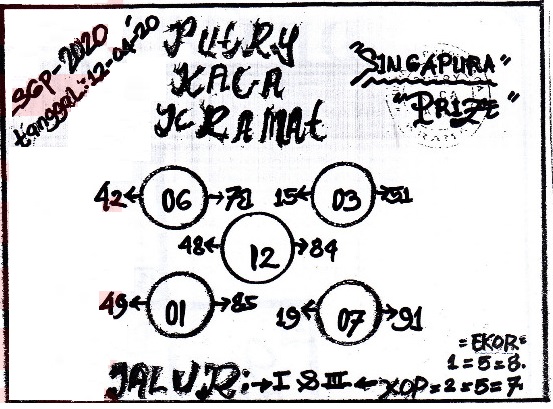 SGP-2020
tanggal:12-04-20
PUtRY
KACA
KRAMAt
"SINGAPURA"
"PRIZE"
42←06→78 15←03→51
48←12→84
49←01→85 19←07→91
=EKOR=
1=5=8.
JALUR:→I S III← KOP=2=5=7